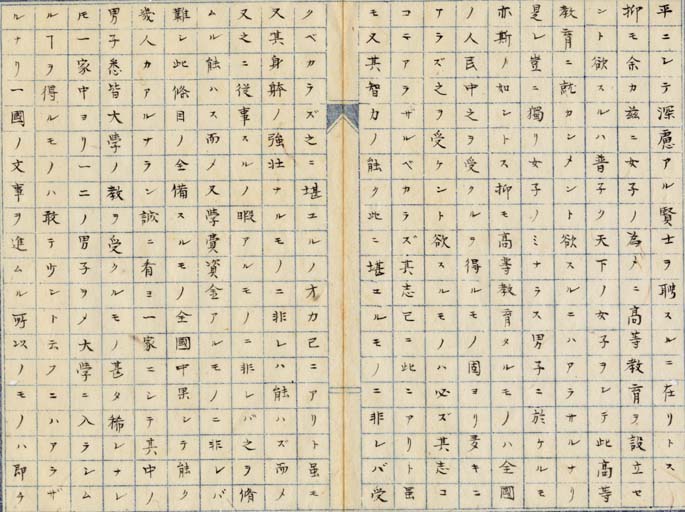 平ニシテ深慮アル賢士ヲ聘スルニ在リトス
抑モ余カ茲ニ女子ノ為メニ高等教育ヲ設立セ
ント欲スルハ普子ク天下ノ女子ヲシテ此高等
教育ニ就カンメント欲スルニハアラサルナリ
是レ豈ニ獨リ女子ノミナラス男子ニ於ケルモ
亦斯ノ如シトス抑モ高等教育タルモノハ全國
ノ人民中之ヲ受クルヲ得ルモノ固ヨリ多キニ
アラズ之ヲ受ケント欲スルモノハ必ズ其志コ
コニアラザルベカラズ其志已ニ此ニアリト虽
モ又其智力ノ能ク此ニ堪エルモノニ非レバ受
クベカラズ之ニ堪エルノオカ已ニアリト虽モ
又其身躰ノ強壮ナルモノニ非レハ能ハズ而メ
又之ニ従事スルノ暇アルモノニ非レバ之ヲ脩
ムル能ハス而メ又学費資金アルモノニ非レバ
難シ此條目ノ全備スルモノ全國中果シテ能ク
幾人カアルナラン誠ニ看ヨ一家ニシテ其中ノ
男子悉皆大學ノ教ヲ受クルモノ甚タ稀レナレ
𪜈一家中ヨリ一二ノ男子ヲメ大學ニ入ラシム
ルヿヲ得ルモノハ敢テ少シト云フニハアラザ
ルナリ一國ノ文事ヲ進ムル所以ノモノハ即チ